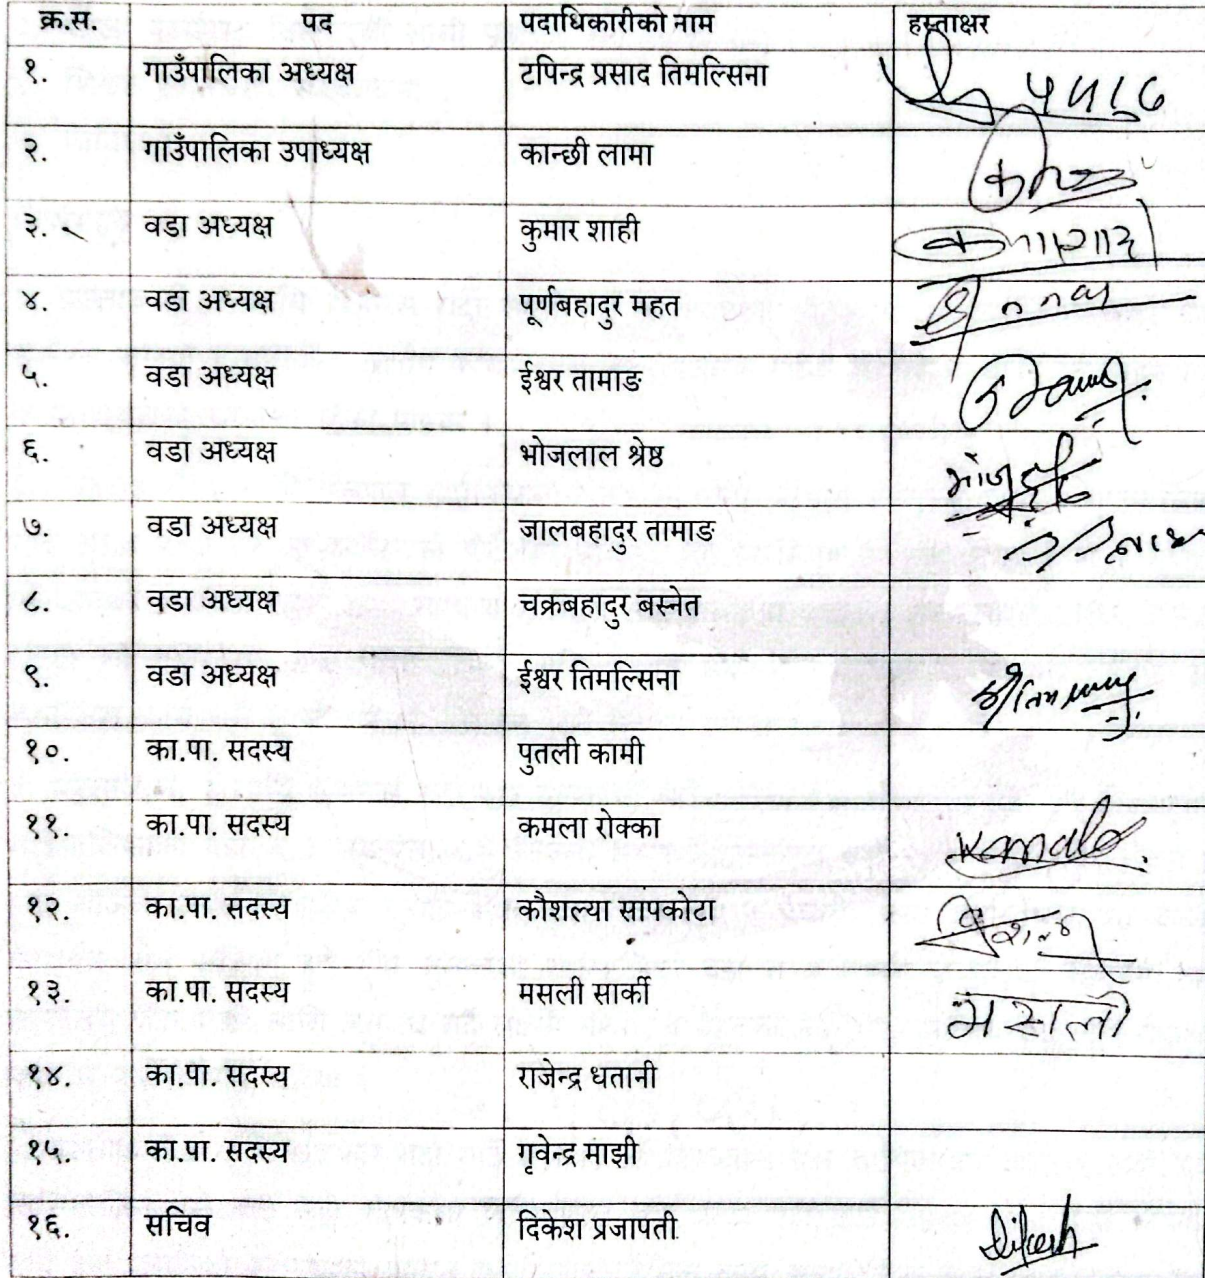 क्र.स. पद पदाधिकारीको नाम हस्ताक्षर
१. गाउँपालिका अध्यक्ष टपिन्द्र प्रसाद तिमल्सिना
२. गाउँपालिका उपाध्यक्ष कान्छी लामा
३. वडा अध्यक्ष कुमार शाही
४. वडा अध्यक्ष पूर्णबहादुर महत
५. वडा अध्यक्ष ईश्वर तामाङ
६. वडा अध्यक्ष भोजलाल श्रेष्ठ
७. वडा अध्यक्ष जालबहादुर तामाङ
८. वडा अध्यक्ष चक्रबहादुर बस्नेत
९. वडा अध्यक्ष ईश्वर तिमल्सिना
१०. का.पा. सदस्य पुतली कामी
११. का.पा. सदस्य कमला रोक्का Kamala
१२. का.पा. सदस्य कौशल्या सापकोटा
१३. का.पा. सदस्य मसली सार्की मसली
१४. का.पा. सदस्य राजेन्द्र धतानी
१५. का.पा. सदस्य गृवेन्द्र माझी
१६. सचिव दिकेश प्रजापती Dikesh